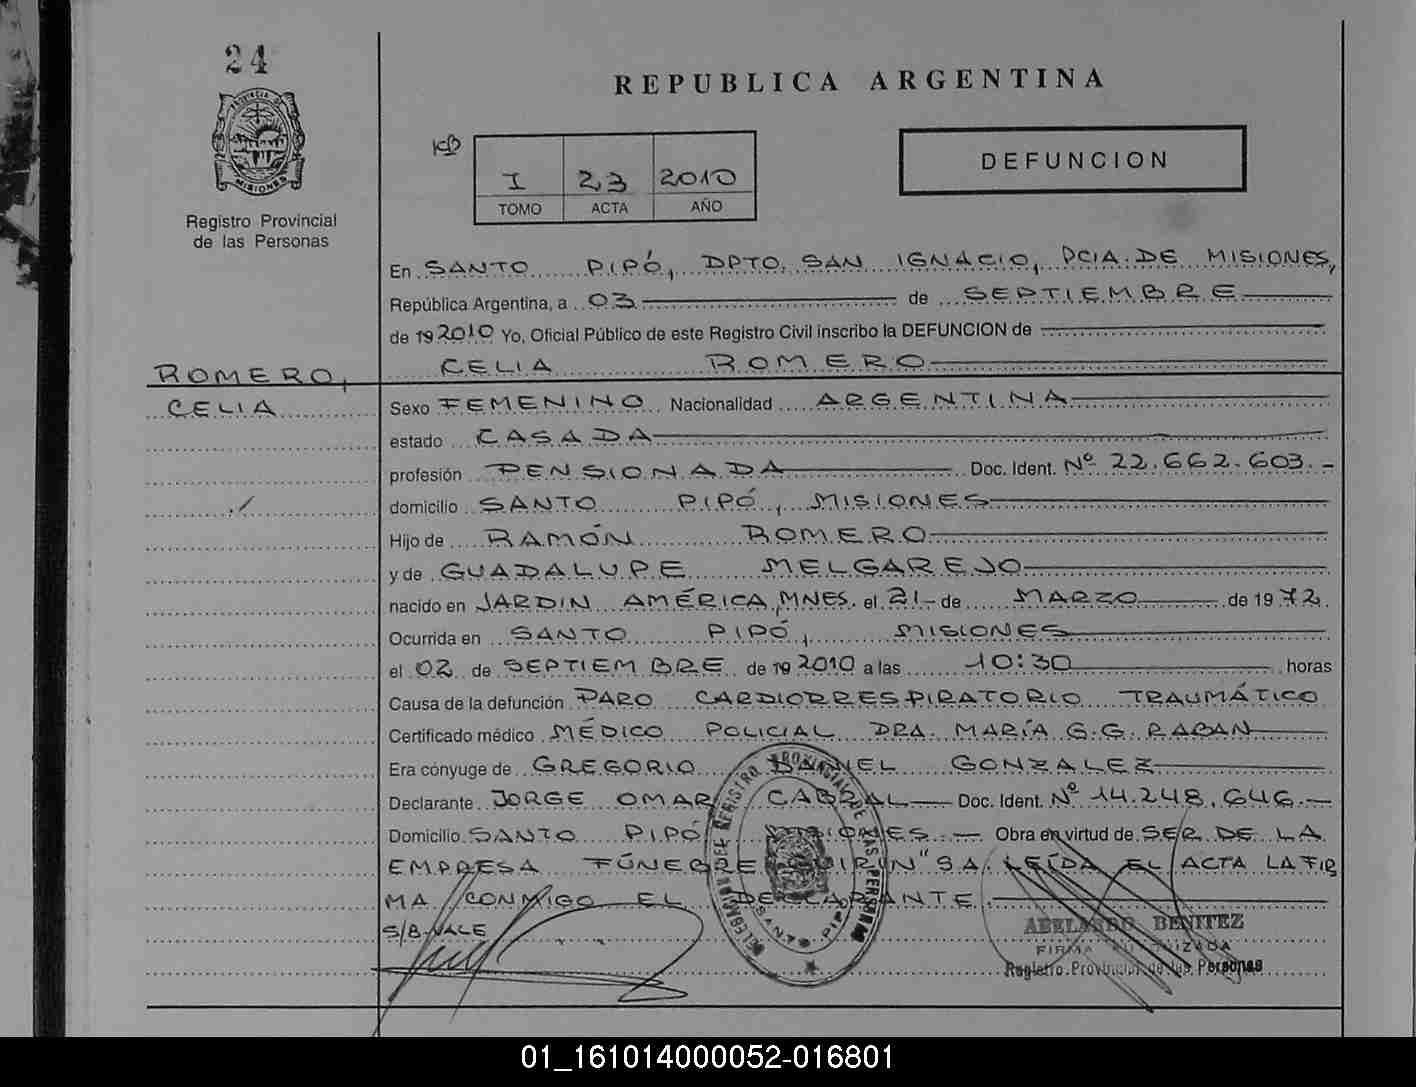 24
PROVINCIA DE
MISIONES
Registro Provincial
de las Personas
REPUBLICA ARGENTINA
I 23 2010
TOMO ACTA AÑO
DEFUNCION
En SANTO PIPÓ, DPTO. SAN IGNACIO, PCIA. DE MISIONES,
República Argentina, a 03 de SEPTIEMBRE
de 19 2010 Yo, Oficial Público de este Registro Civil inscribo la DEFUNCION de
CELIA ROMERO
ROMERO,
CELIA
Sexo FEMENINO Nacionalidad ARGENTINA
estado CASADA
profesión PENSIONADA Doc. Ident. Nº 22.662.603.-
domicilio SANTO PIPÓ, MISIONES
Hijo de RAMÓN ROMERO
y de GUADALUPE MELGAREJO
nacido en JARDIN AMÉRICA, MNES. el 21- de MARZO de 1972.
Ocurrida en SANTO PIPÓ, MISIONES
el 02 de SEPTIEMBRE de 19 2010 a las 10:30 horas
Causa de la defunción PARO CARDIORRESPIRATORIO TRAUMÁTICO
Certificado médico MÉDICO POLICIAL DRA. MARÍA G.G. RABAN
Era cónyuge de GREGORIO DANIEL GONZALEZ
Declarante JORGE OMAR CABRAL Doc. Ident. Nº 14.248.646.-
Domicilio SANTO PIPÓ MISIONES.- Obra en virtud de SER DE LA
EMPRESA FÚNEBRE S.A. LEÍDA EL ACTA LA FIR
MA CONMIGO EL DECLARANTE.
S/B VALE
DELEGACION DEL REGISTRO PROVINCIAL DE LAS PERSONAS
SANTO PIPO
ABELARDO BENITEZ
FIRMA AUTORIZADA
Registro Provincial de las Personas
01_161014000052-016801